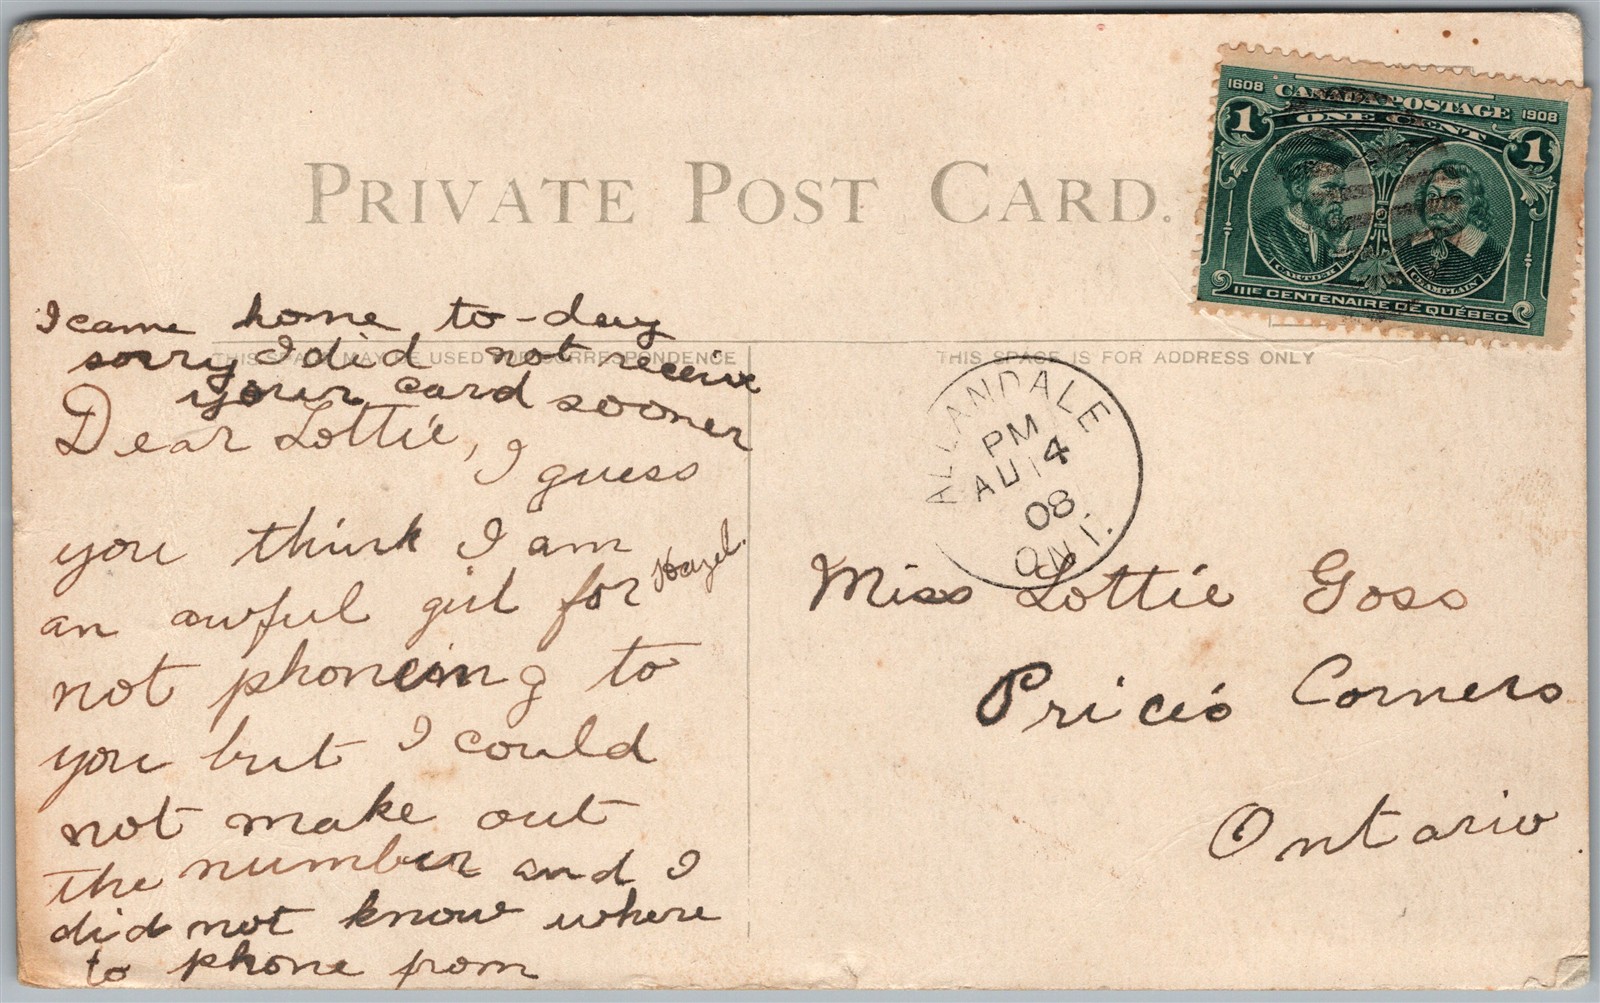 PRIVATE POST CARD.
1608 CANADA POSTAGE 1908
1 ONE CENT 1
CARTIER CHAMPLAIN
IIIE CENTENAIRE DE QUÉBEC
I came home to-day
sorry I did not receive
your card sooner
THIS SPACE MAY BE USED FOR CORRESPONDENCE
THIS SPACE IS FOR ADDRESS ONLY
Dear Lottie, I guess
you think I am
an awful girl for
not phoneing to
you but I could
not make out
the number and I
did not know where
to phone from
Hazel.
ALLANDALE
PM
AU 14
08
ONT.
Miss Lottie Goss
Price's Corners
Ontario